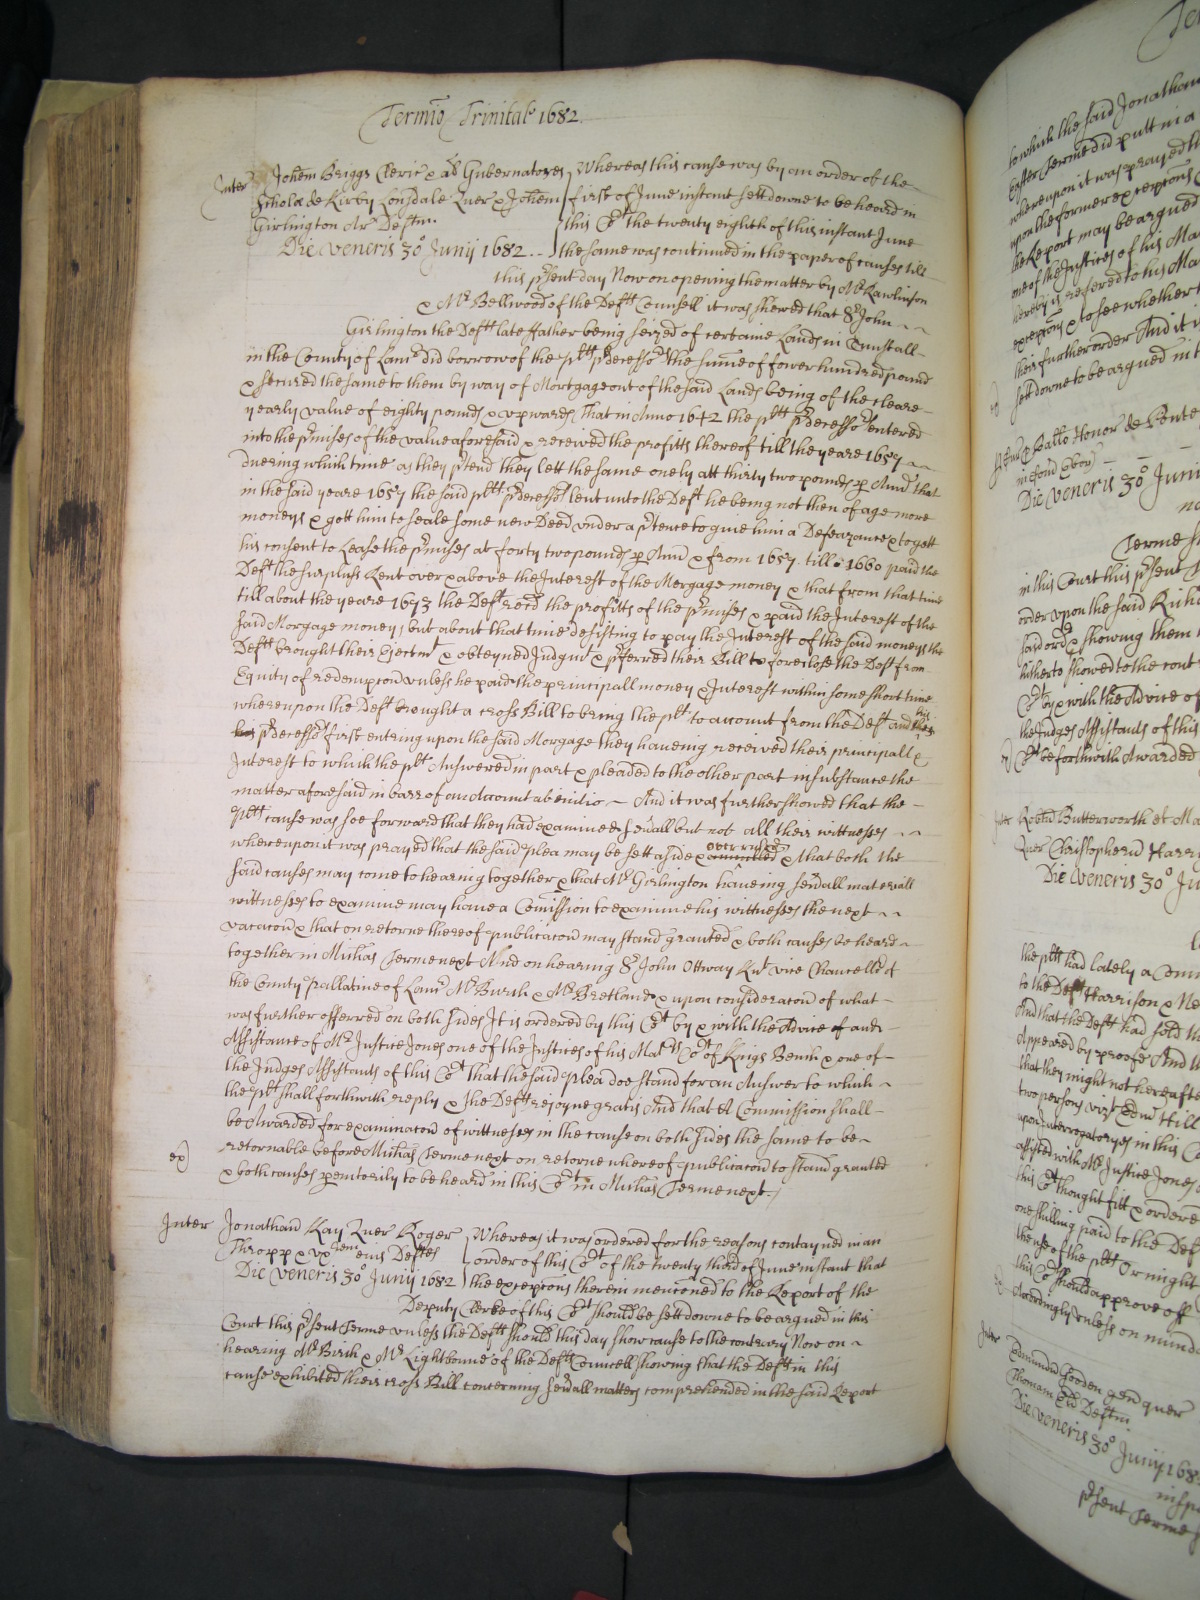 Termio Trinitat 1682
Inter Johem Briggs Cleric & al Gubernatores Whereas this cause was by an order of the
Schola de Kirby Lonsdale Quer & Johem first of June instant sett downe to be heard in
Girlington Ar Deftm this Cort the twenty eighth of this instant June
Die Veneris 30o Junij 1682 the same was continued in the paper of causes till
this psent day Now on opening the matter by Mr Rawlinson
& Mr Bellwood of the Defts Counsell it was shewed that Sr John
Girlington the Defts late ffather being seized of certaine Lands in Tunstall
in the County of Lancr did borrow of the plts pdecessors the summe of fower hundred pound
& secured the same to them by way of Mortgage out of the said Lands being of the cleare
yearly value of eighty pounds & vpwards That in Anno 1642 the plts pdecessors entered
into the pmises of the value aforesaid & received the profitts thereof till the yeare 1657
dureing which time as they ptend they lett the same onely att thirty two pounds p Annu that
in the said yeare 1657 the said plts pdecessors lent unto the Deft he being not then of age more
moneys & gott him to seale some new Deed vnder a ptence to give him a Defeazance & to gett
his consent to Lease the pmises at forty two pounds p Annu & from 1657 till 1660 paid the
Deft the surpluss Rent over & above the Interest of the Morgage money & that from that time
till about the yeare 1673 the Deft recd the profitts of the pmises & paid the Interest of the
said Morgage money, but about that time desisting to pay the Interest of the said moneys the
Defts brought their Ejectmt & obteyned Judgmt & pferred their Bill to foreclose the Deft from
Equity of redempcon vnless he paid the principall money & Interest within some short time
whereupon the Deft brought a cross Bill to bring the plt to account from the Deft and his
pdecessors first entring upon the said Morgage they haveing received their principall &
Interest to which the plt Answered in part & pleaded to the other part in substance the
matter aforesaid in barr of an Account ab initio And it was further showed that the
plts cause was soe forward that they had examined seuall but not all their wittnesses
whereupon it was prayed that the said plea may be sett aside & over ruled & that both the
said causes may come to hearing together & that Mr Girlington haveing seuall materiall
wittnesses to examine may have a Comission to examine his wittnesses the next
vacacon & that on retorne thereof publicacon may stand granted & both causes be heard
together in Michas Terme next And on hearing Sr John Ottway Knt vice Chancellr of
the County Pallatine of Lancr Mr Burch & Mr Bretland & upon consideracon of what
was further offerred on both sides It is ordered by this Cort by & with the Advice & and
Assistance of Mr Justice Jones one of the Justices of his Maties Cort of Kings Bench & one of
the Judges Assistants of this Cort that the said plea doe stand for an Answer to which
the plt shall forthwith reply & the Deft rejoyne gratis And that A Commission shall
be Awarded for examinacon of wittnesses in the cause on both sides the same to be
retornable before Michas Terme next on retorne whereof publicacon to stand granted
ex) & both causes pemtorily to be heard in this Cort in Michas Terme next
Inter Jonathan Kay Quer Roger Whereas it was ordered for the reasons contayned in an
Thropp & vxrem eius Deftes order of this Cort of the twenty third of June instant that
Die Veneris 30o Junij 1682 the excepcons therein mencioned to the Report of the
Deputy Clerke of this Cort should be sett downe to be argued in this
Court this psent Terme vnless the Defts should this day show cause to the contrary Now on
hearing Mr Birch & Mr Lightbowne of the Defts Councell showing that the Deft in this
cause exhibited their cross Bill concerning seuall matters comprehended in the said Report
to which the said Jonathan
Easter Terme did putt in a
whereupon it was prayed
upon the former excepcons
the Report may be argued
one of the Justices of his Ma
hereby is refered to his Ma
excepcons & to see whether
their further order And it
sett downe to be argued in t
Die Veneris 30o Juni
Terme
in this Court this psent
order upon the said Rich
said ordr & showing them
hitherto showed to the cont
Cort by & with the Advice of
the Judges Assistants of this
Cort be forthwith Awarded
Inter Robtu Butterworth et Ma
Quer Christopheru Harri
Die Veneris 30o Ju
the plts had lately a Com
to the Deft Harrison & Ne
And that the Deft had sold
Appeared by proofe And
that they might not hereafte
two persons vizt Edmd Hill
upon Interrogatoryes in this C
assisted with Mr Justice Jones
this Cort thought fitt & ordere
one shilling paid to the Def
the use of the plts Or might
this Cort should approve off
Accordingly vnless on munda
Inter Edmundu Hoeden gen quer
Thomam Deftm
Die Veneris 30o Junij 168
psent Terme